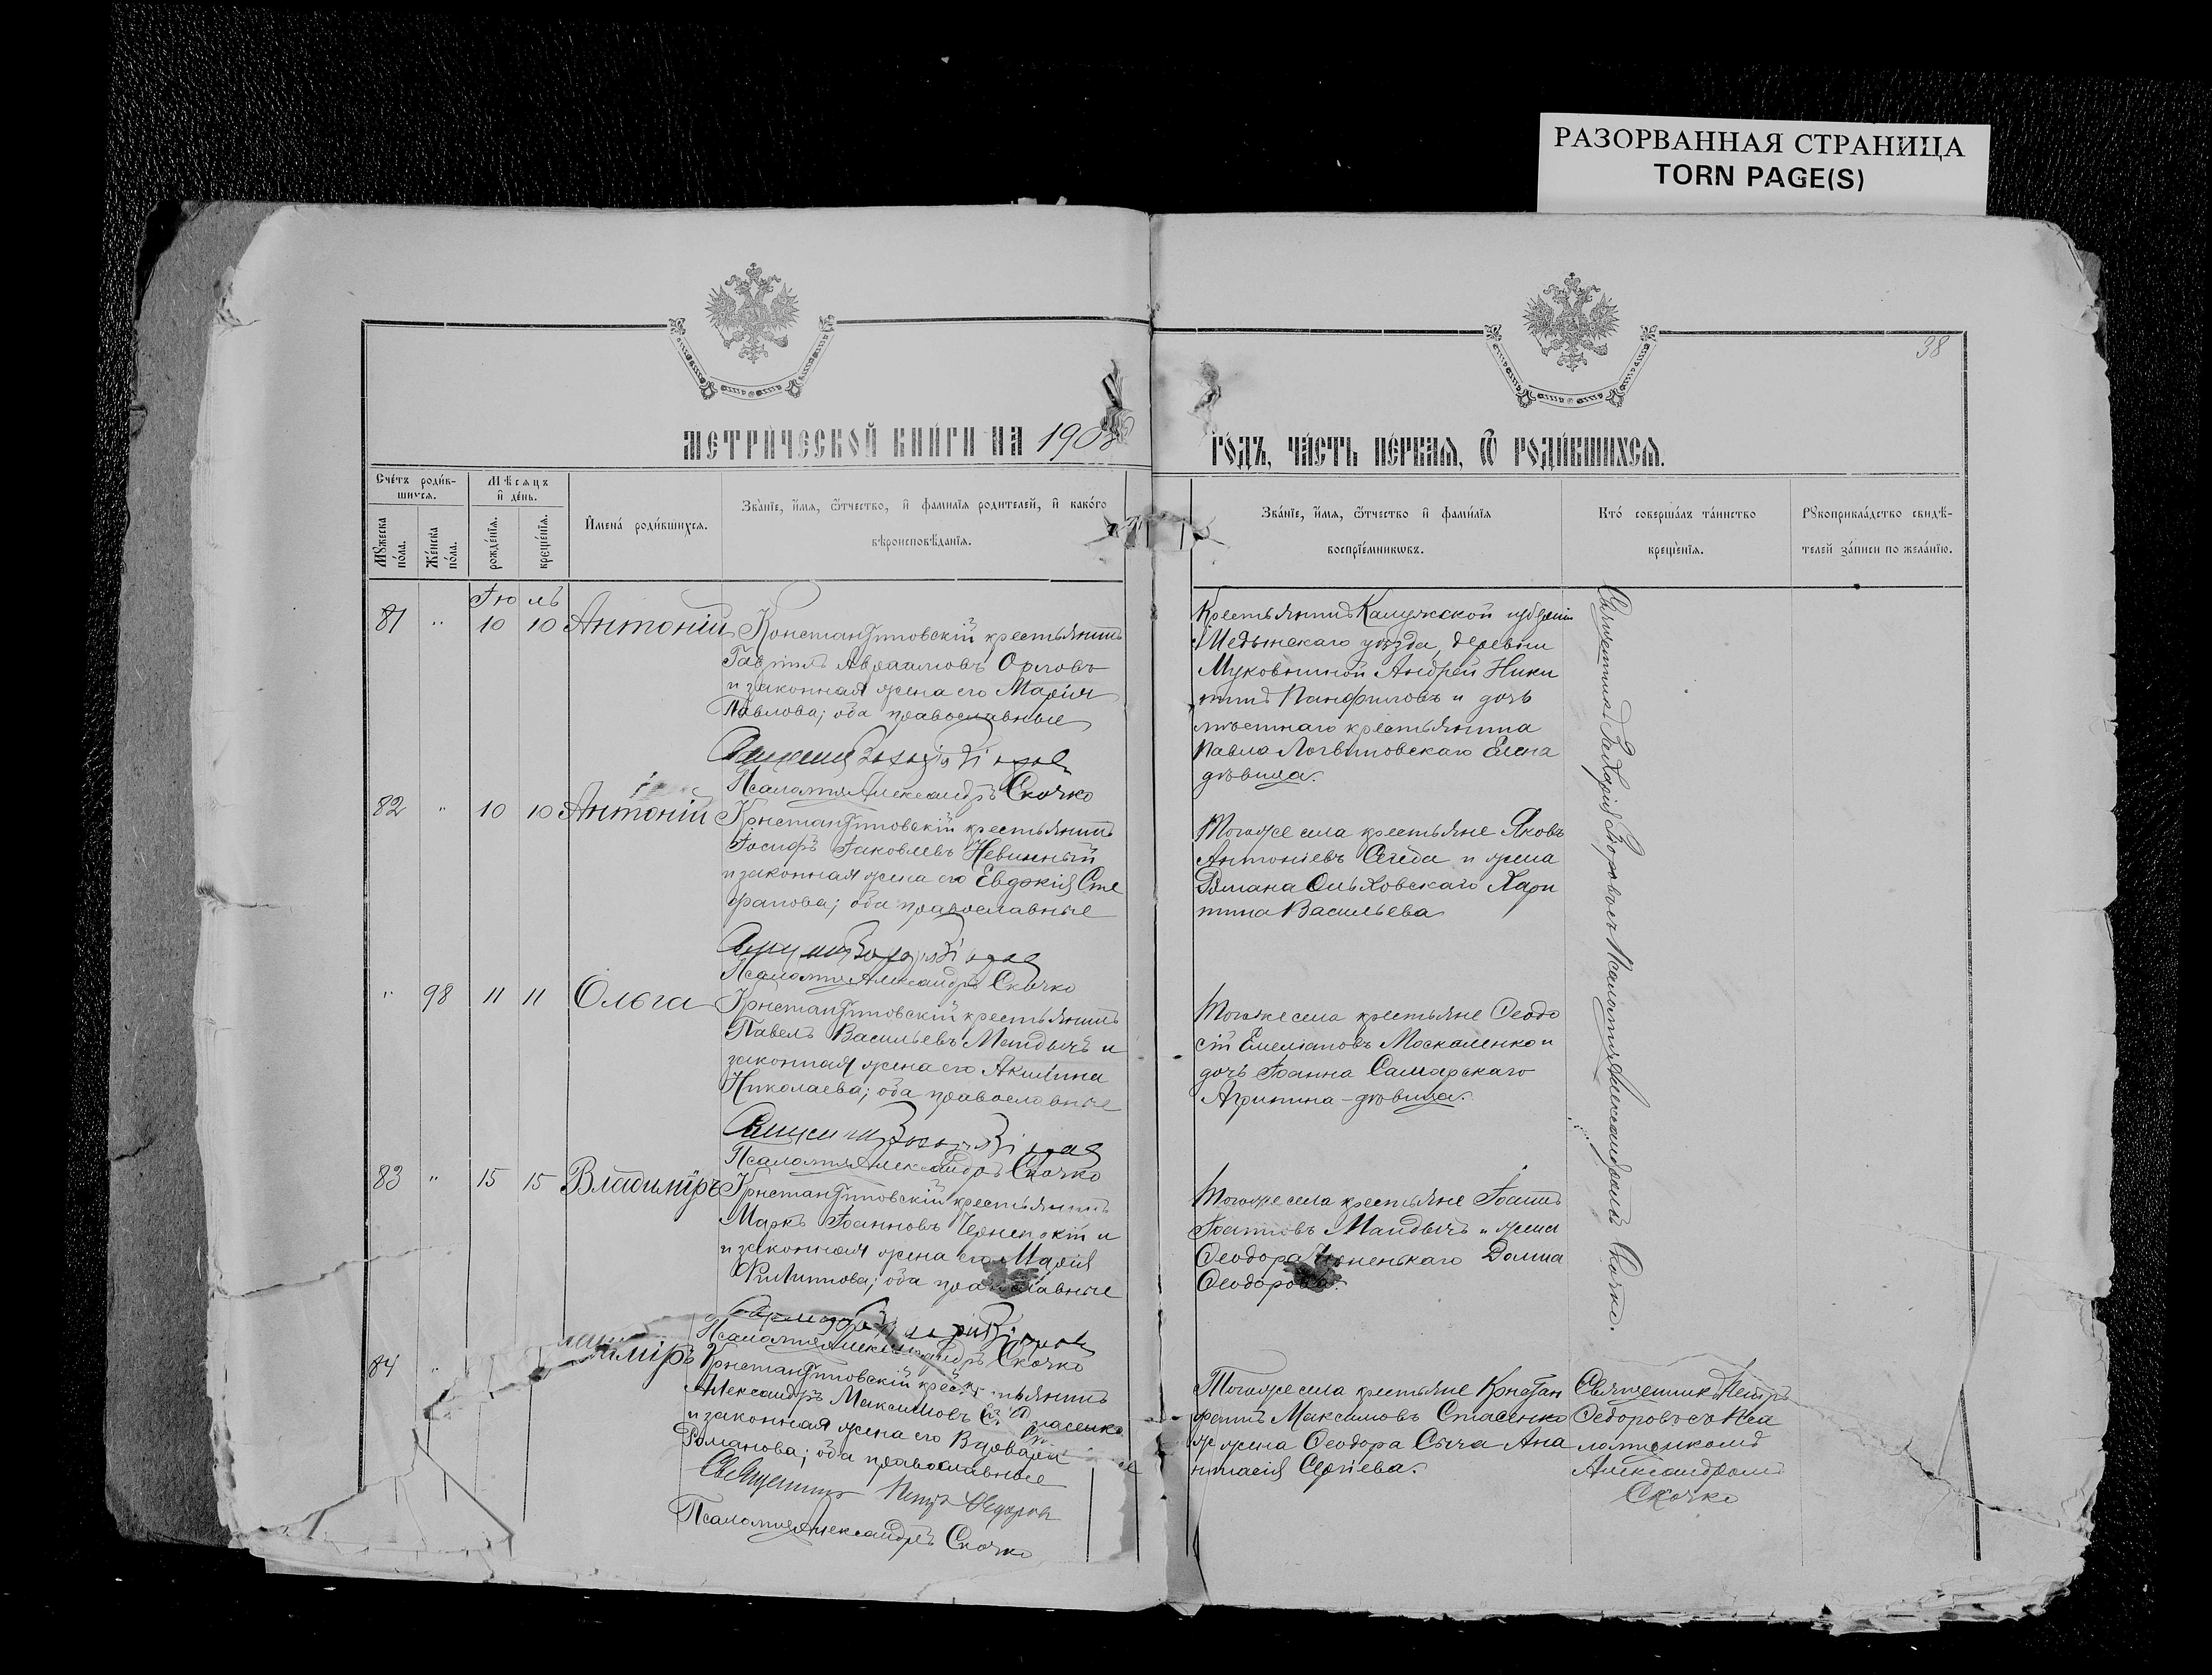 РАЗОРВАННАЯ СТРАНИЦА
TORN PAGE(S)
38
МЕТРИЧЕСКОЙ КНИГИ НА 190
ГОДЪ, ЧАСТЬ ПЕРВАЯ, Ѿ РОДИВШИХСЯ.
Счетъ родив-
шихся.
Мѣсяцъ
и день.
Мужеска
пола.
Женска
пола.
рожденія.
крещенія.
Имена родившихся.
Званіе, имя, ѿтчество, и фамилія родителей, и какого
вѣроисповѣданія.
Званіе, имя, ѿтчество и фамилія
воспріемниковъ.
Кто совершалъ таинство
крещенія.
Рукоприкладство свидѣ-
телей записи по желанію.
Іюль
81 " 10 10 Антоній
Константиновскій крестьянинъ
Гавріилъ Авраамовъ Орловъ
и законная жена его Марія
Павлова; оба православные
Псаломщ Александръ Скочко
Крестьянинъ Калужской губерніи
Медынскаго уѣзда, деревни
Муковниной Андрей Ники
тинъ Панфиловъ и дочь
мѣстнаго крестьянина
Павла Логвиновскаго Елена
дѣвица.
Священникъ Захарія Псаломщ Александромъ Скочко.
82 " 10 10 Антоній
Константиновскій крестьянинъ
Іосифъ Іаковлевъ Невинный
и законная жена его Евдокія Сте
фанова; оба православные
Псаломщ Александръ Скочко
Тогоже села крестьяне Яковъ
Антоніевъ Сегеда и жена
Романа Ольховскаго Хари
тина Васильева
" 98 11 11 Ольга
Константиновскій крестьянинъ
Павелъ Васильевъ Мандычъ и
законная жена его Акилина
Николаева; оба православные
Псаломщ Александръ Скочко
Тогоже села крестьяне Ѳеодо
сій Емеліановъ Москаленко и
дочь Іоанна Самарскаго
Агрипина - дѣвица.
83 " 15 15 Владиміръ
Константиновскій крестьянинъ
Маркъ Іоанновъ Черненькій и
и законная жена его Марія
Филиппова; оба православные
Псаломщ Александръ Скочко
Тогоже села крестьяне Іоаннъ
Іоанновъ Мандычъ и жена
Ѳеодора Черненькаго Домна
Ѳеодорова.
84 " иміръ
Константиновскій крестьянинъ
Александръ Максимовъ Стасенко
и законная жена его
Романова; оба православные
Священникъ Петръ Ѳедоровъ
Псаломщ Александръ Скочко
Тогоже села крестьяне Констан
тинъ Максимовъ Стасенко
и жена Ѳеодора Сыча Ана
стасія Сергіева.
Священникъ Петръ
Ѳедоровъ съ Пса
ломщикомъ
Александромъ
Скочко